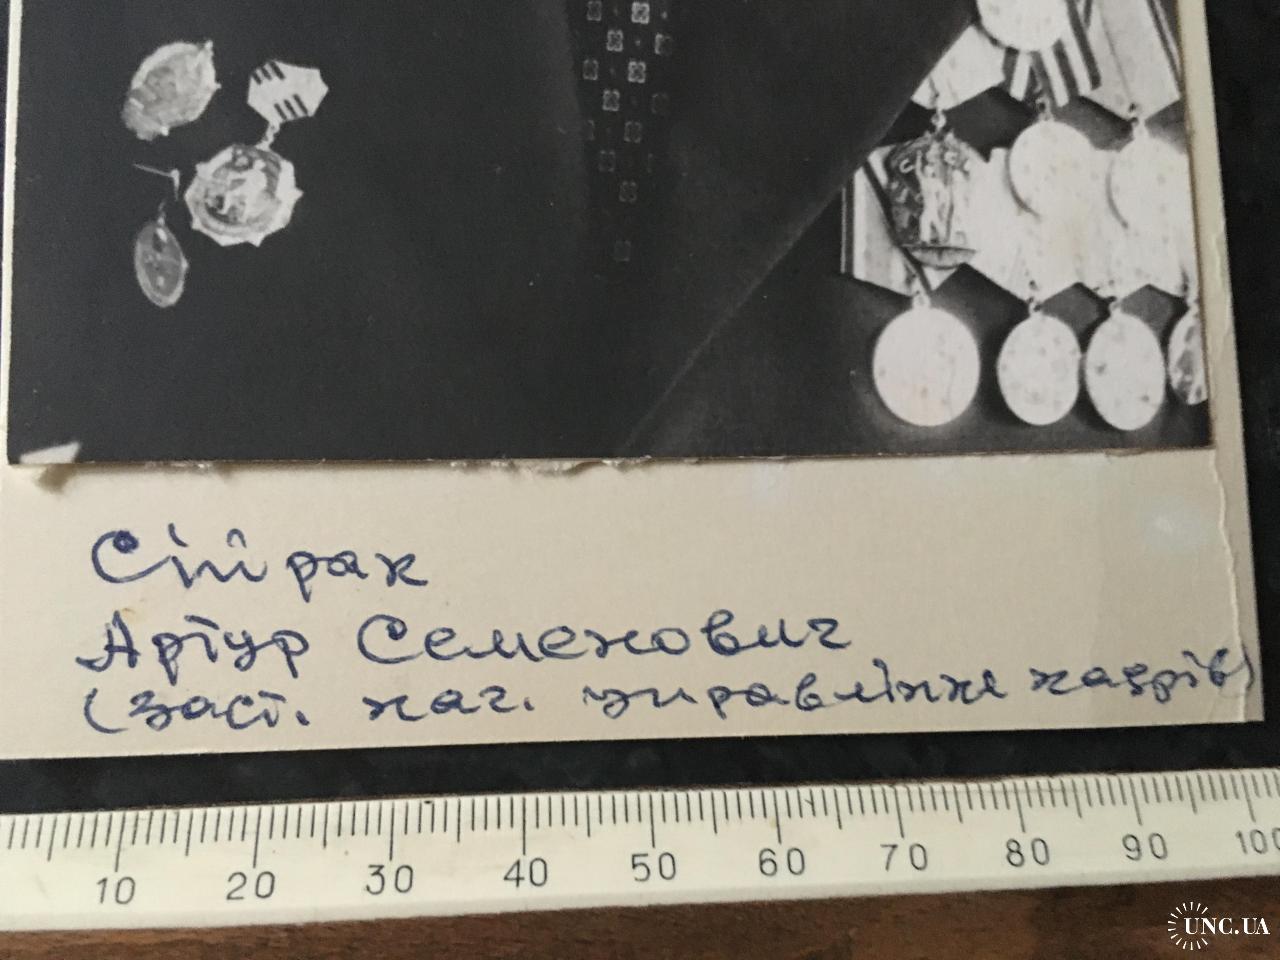 Спірак
Артур Семенович
(заст. нач. управління кадрів)
10 20 30 40 50 60 70 80 90 100
UNC.UA